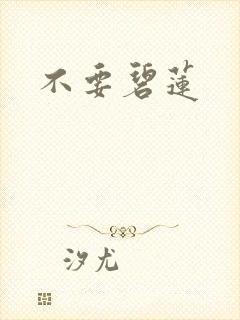 不要碧蓮
汐尤